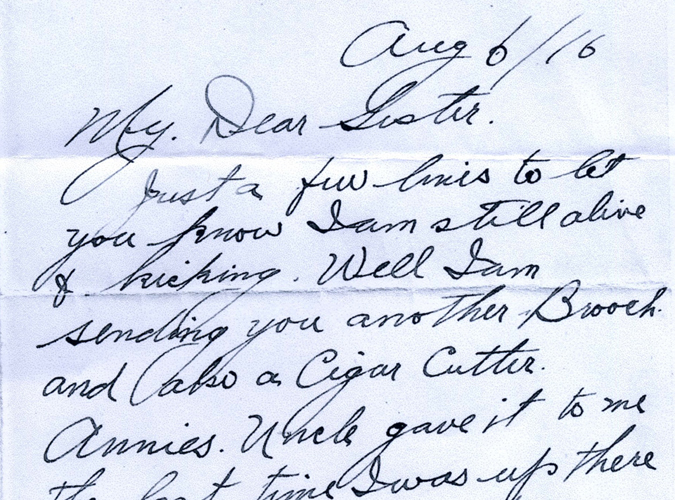 Aug 6/16
My. Dear Sister.
Just a few lines to let
you know I am still alive
& kicking. Well I am
sending you another Brooch.
and also a Cigar Cutter.
Annies. Uncle gave it to me
the last time I was up there